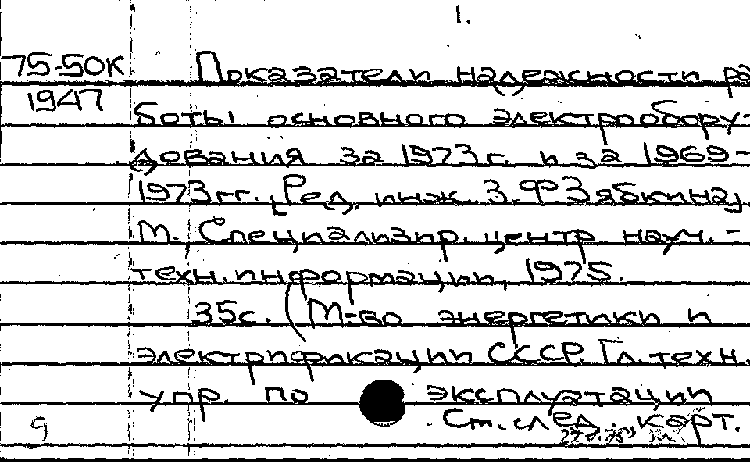 1.
75-50К
1947
Показатели надежности ра
боты основного электрообору-
дования за 1973г. и за 1969-
1973гг. [Ред. инж. З.Ф Зябкина]
М., Специализир. центр науч.-
техн. информации, 1975.
35с. (М-во энергетики и
электрификации СССР. Гл. техн.
упр. по эксплуатации
9
Ст. след. карт.